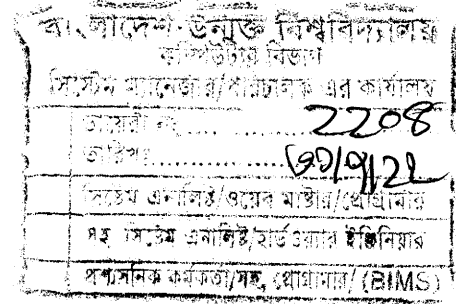 বাংলাদেশ উন্মুক্ত বিশ্ববিদ্যালয়
কম্পিউটার বিভাগ
সিস্টেম ম্যানেজার/পরিচালক এর কার্যালয়
ডায়েরী নং..... 2208
তারিখঃ.....
সিস্টেম এনালিষ্ট/ওয়েব মাষ্টার/প্রোগ্রামার
সহ সিস্টেম এনালিষ্ট/হার্ডওয়্যার ইঞ্জিনিয়ার
প্রশাসনিক কর্মকর্তা/সহ, প্রোগ্রামার/ (BIMS)